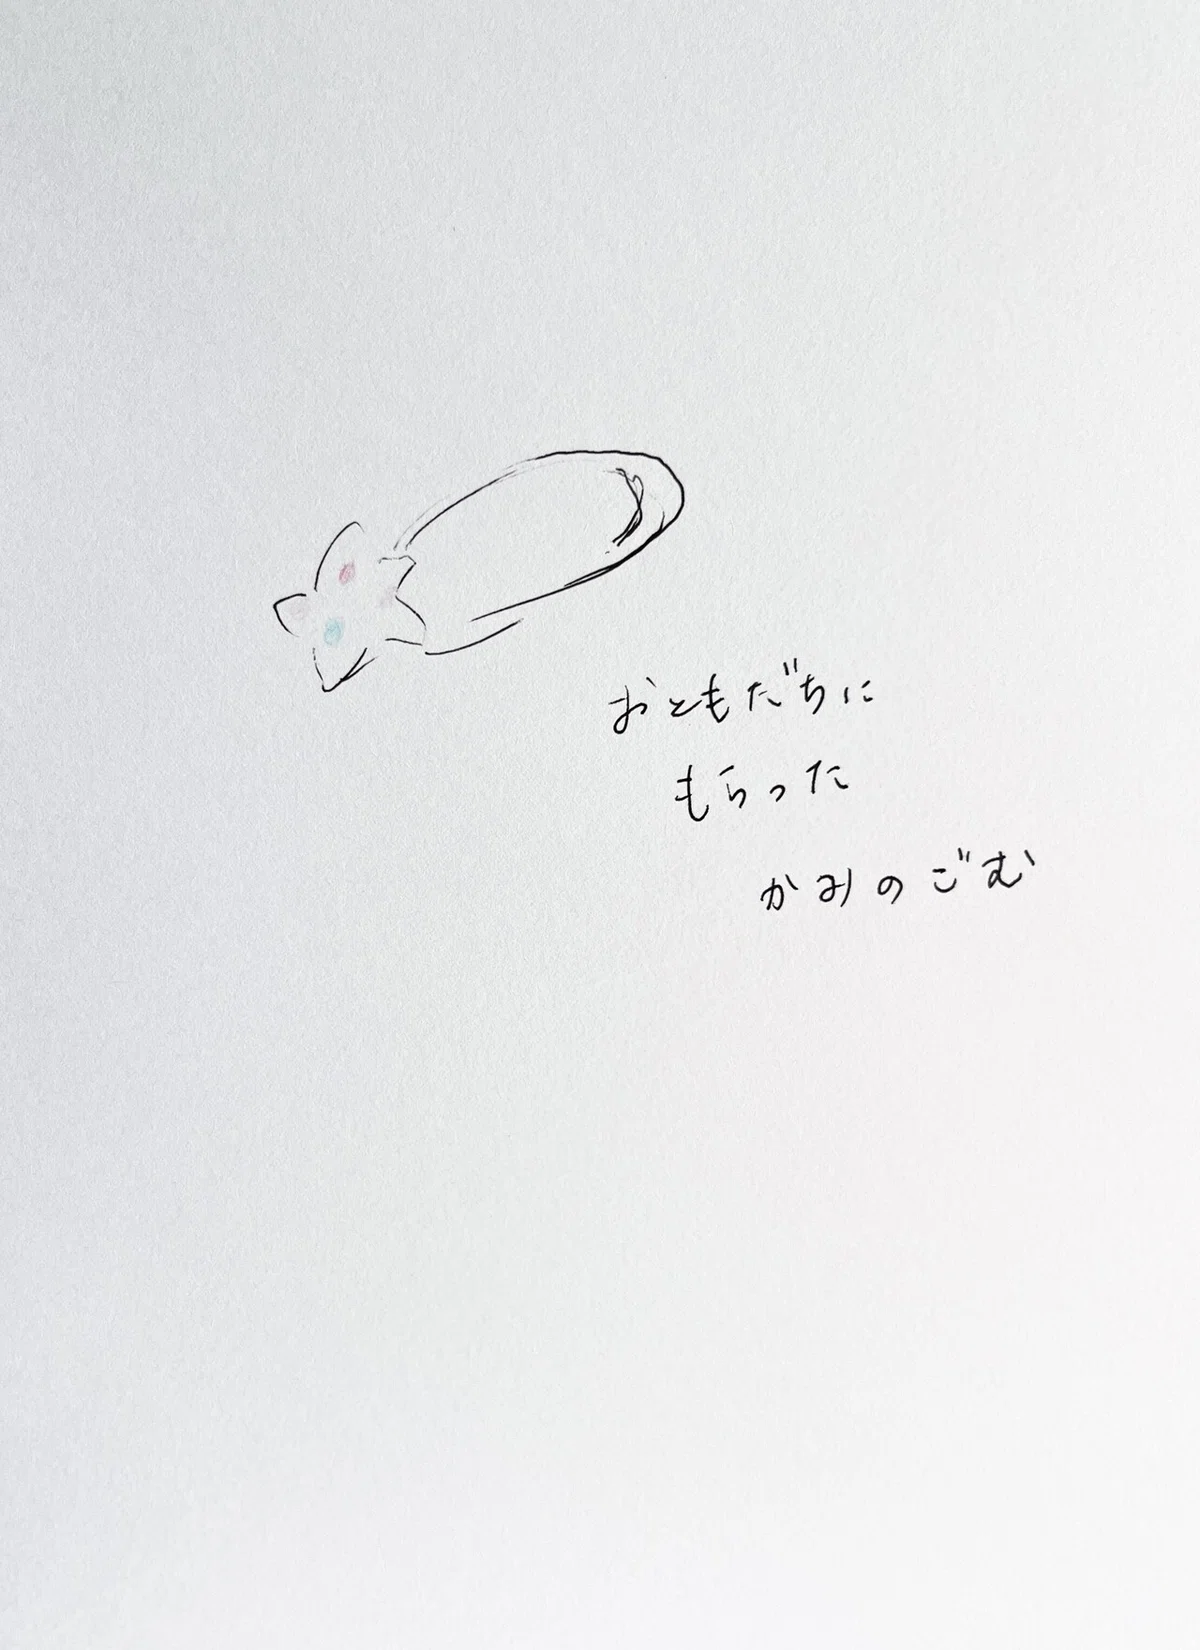 おともだちに
もらった
かみのごむ